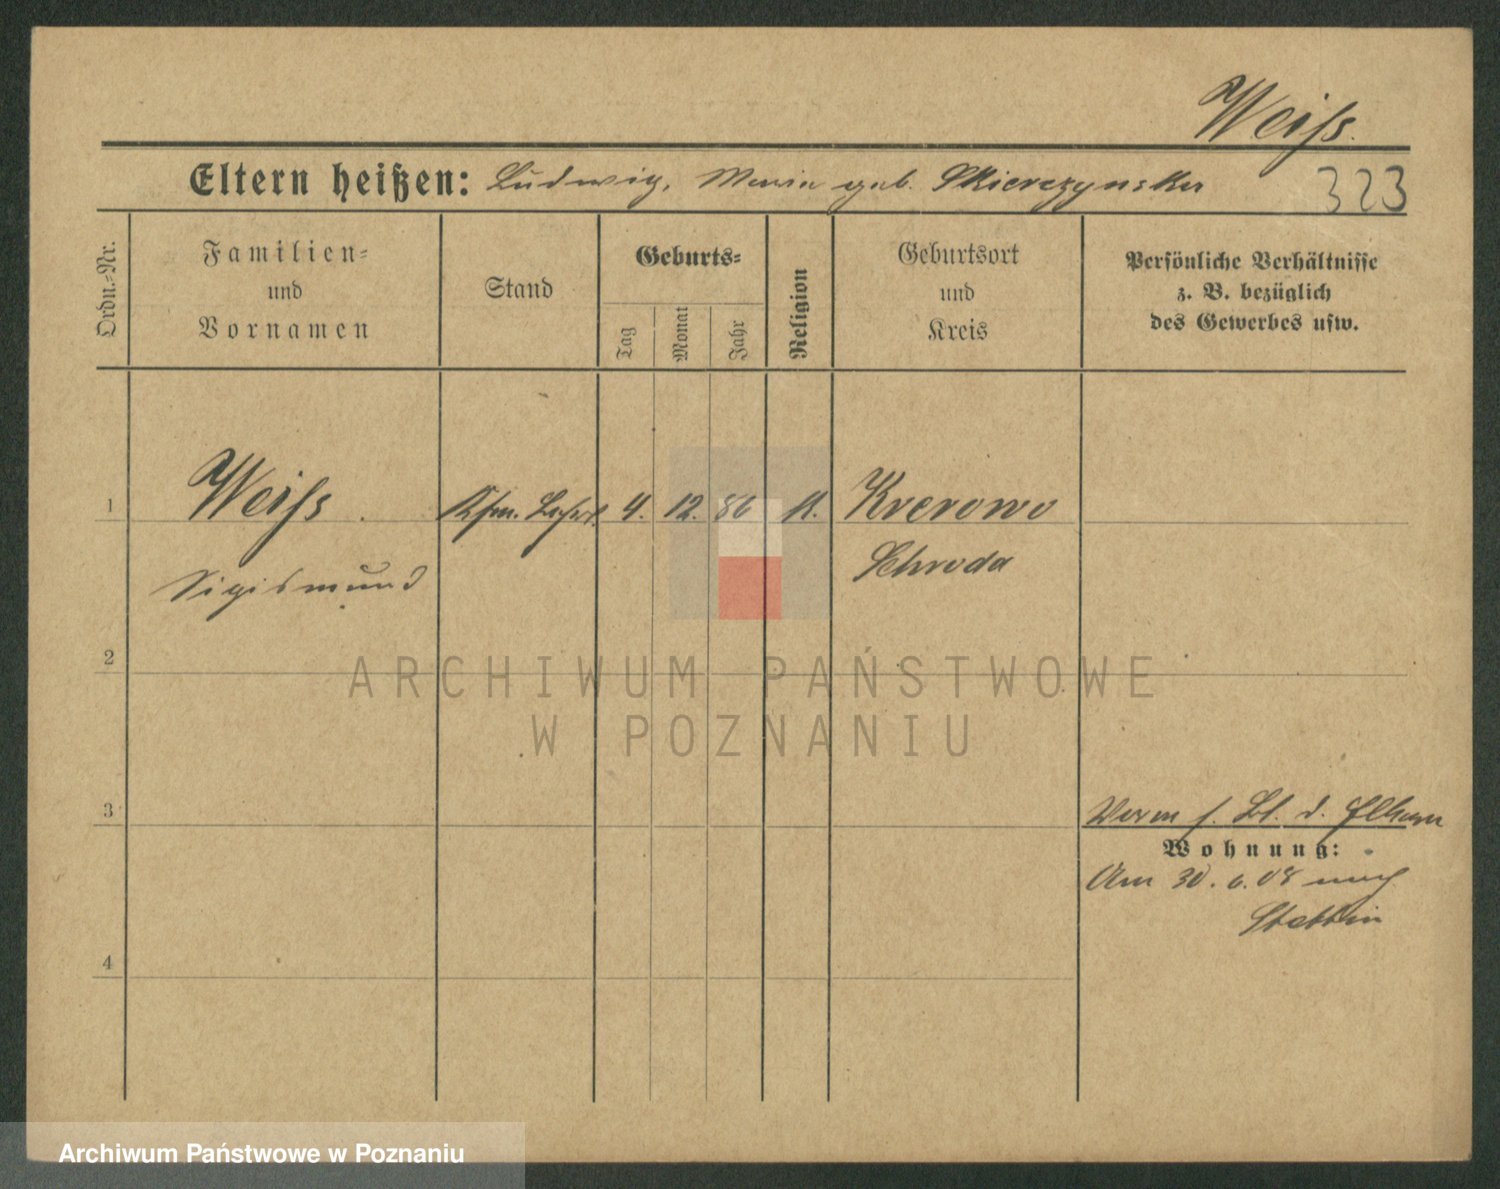 Weiss.
Eltern heißen: Ludwig, Maria geb. Skierczynska 323
Ordn.-Nr.
Familien- und Vornamen
Stand
Geburts-
Tag
Monat
Jahr
Religion
Geburtsort und Kreis
Persönliche Verhältnisse
z. B. bezüglich
des Gewerbes usw.
1 Weiss. Kfm. 4. 12. 86 k. Krerowo
Sigismund Schroda
2
ARCHIWUM PAŃSTWOWE
W POZNANIU
3
Wohnung:
Am 30. 6. 08 nach
Stettin
4
Archiwum Państwowe w Poznaniu